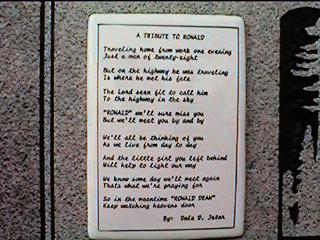 A TRIBUTE TO RONALD
Traveling home from work one evening
Just a man of twenty-eight
But on the highway he was traveling
Is where he met his fate
The Lord seen fit to call him
To the highway in the sky
"RONALD" we'll sure miss you
But we'll meet you by and by
We'll all be thinking of you
As we live from day to day
And the little girl you left behind
Will help to light our way
We know some day we'll meet again
Thats what we're praying for
So in the meantime "RONALD DEAN"
Keep watching heavens door
By: Dale D.